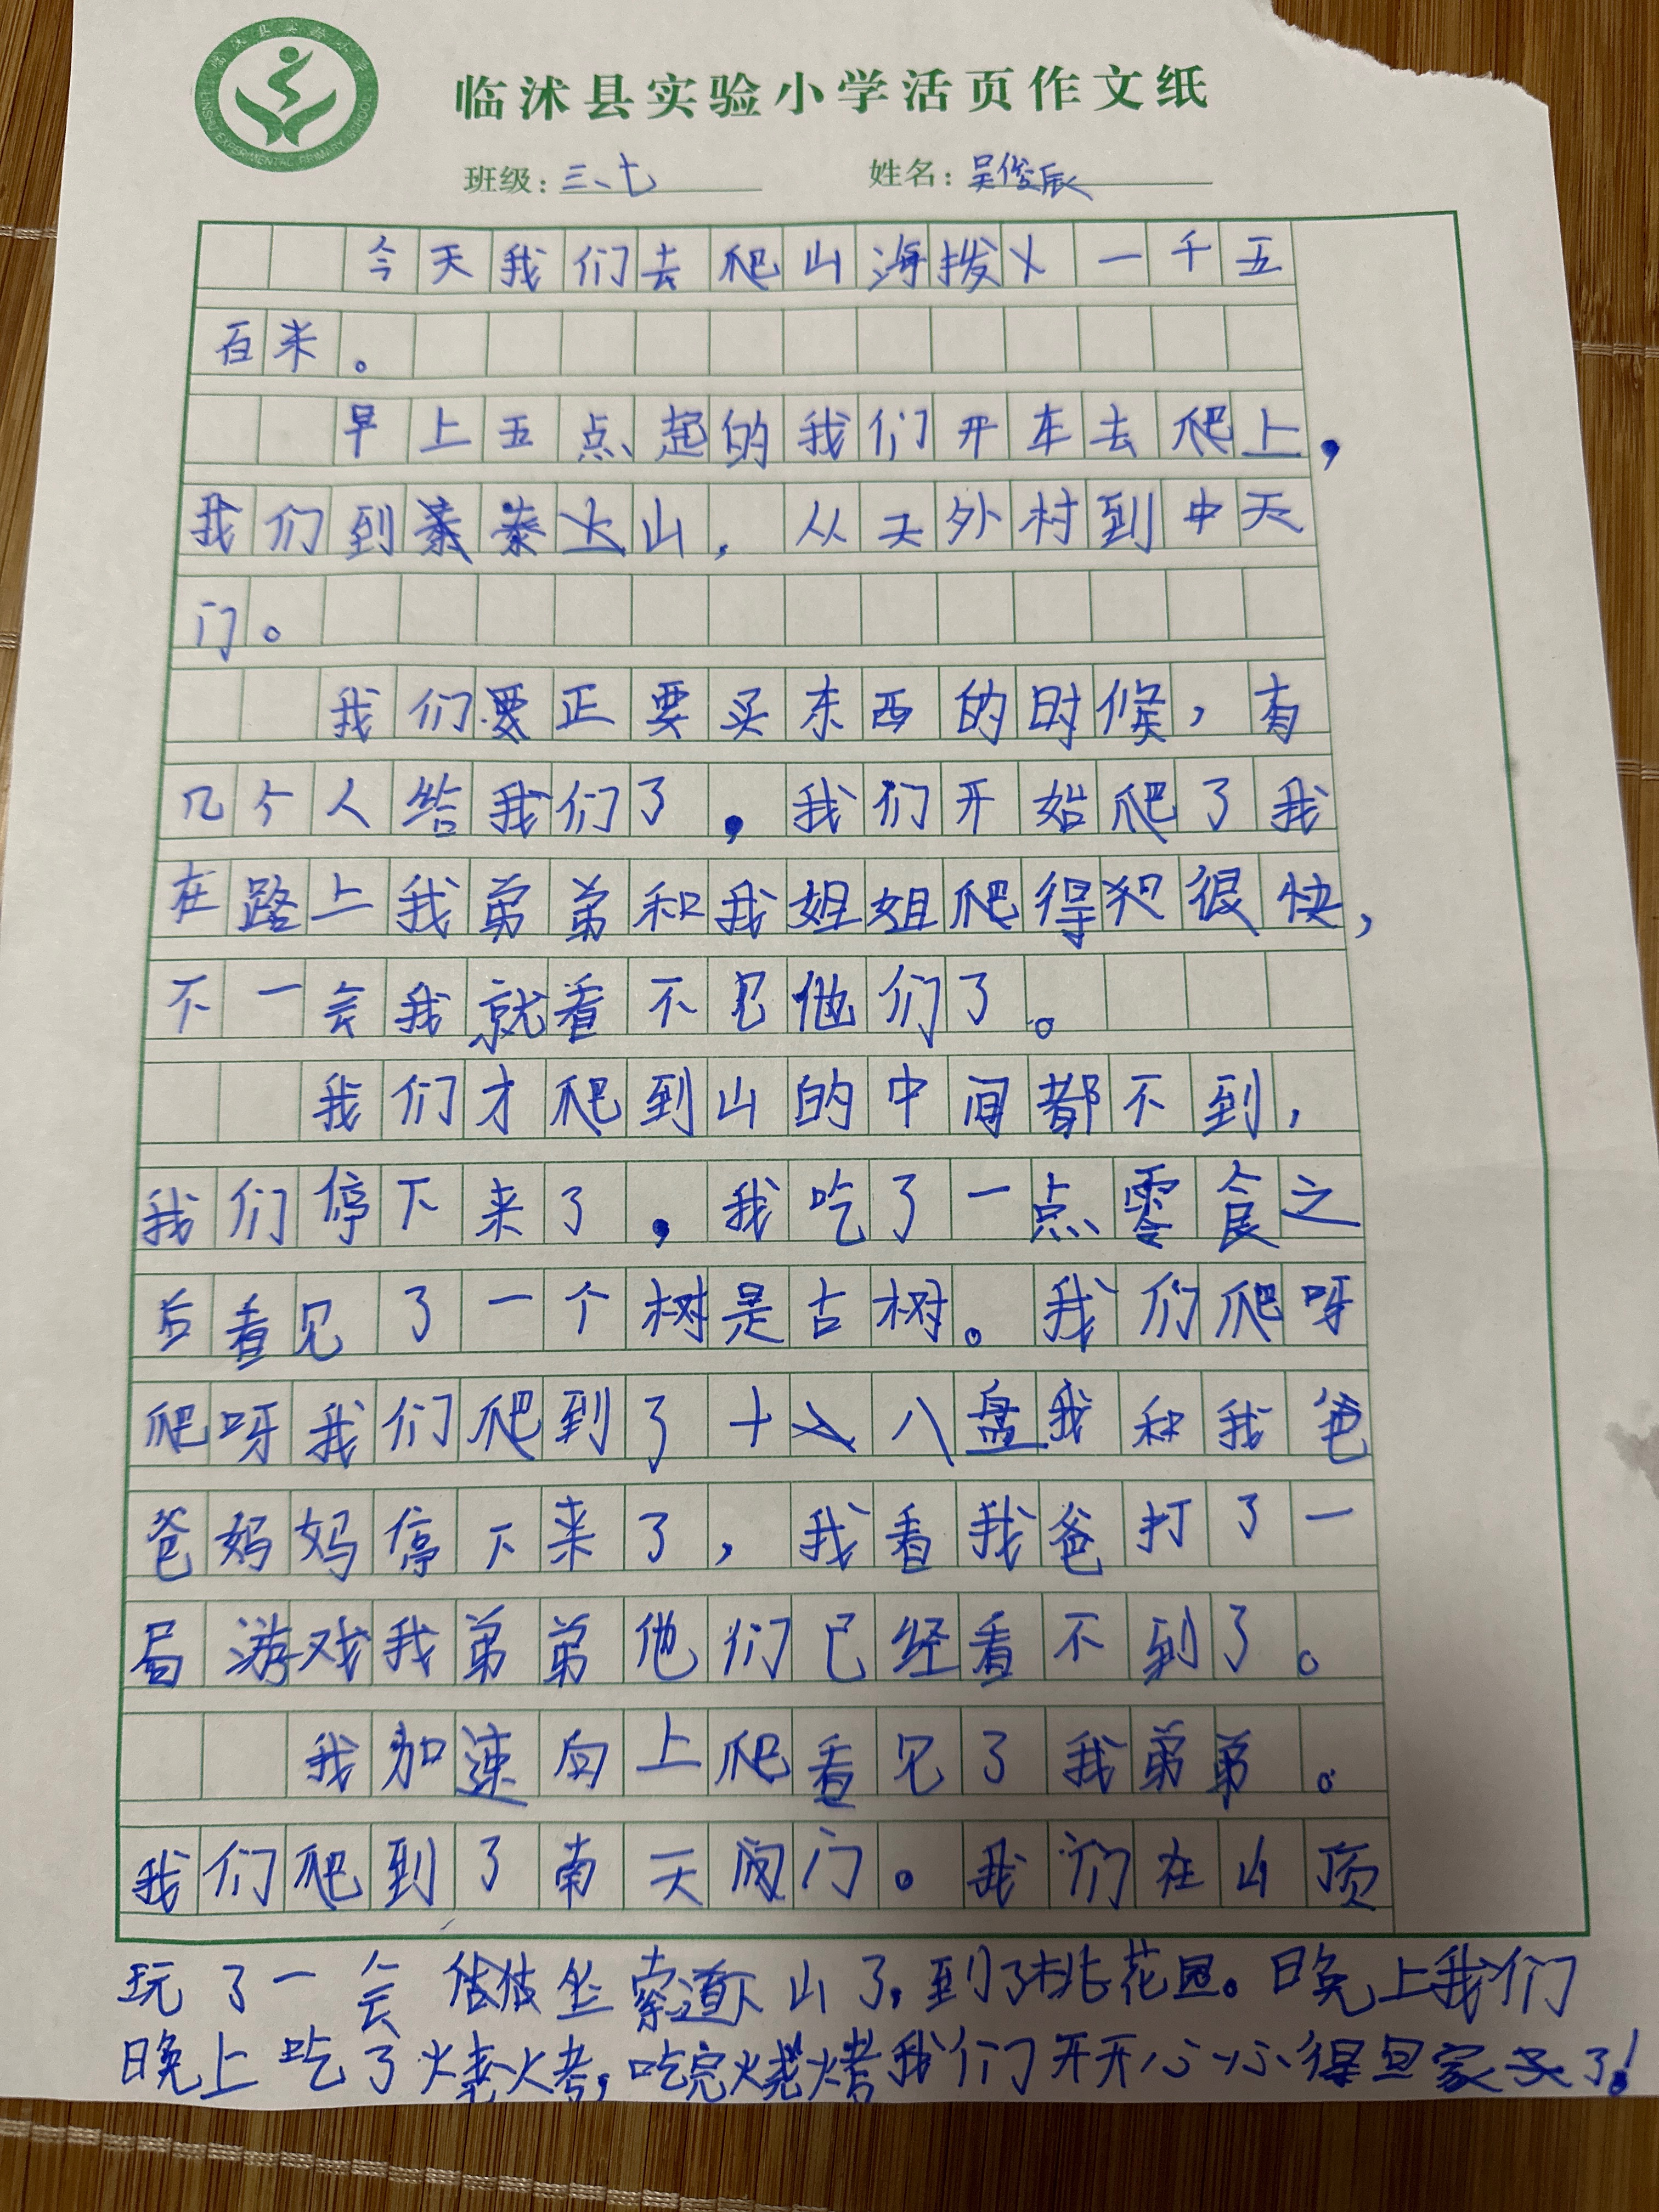 临沭县实验小学
LINSHU EXPERIMENTAL PRIMARY SCHOOL
临沭县实验小学活页作文纸
班级：三、七 姓名：吴俊辰
今天我们去爬山海拨一千五
百米。
早上五点起的我们开车去爬上，
我们到泰山，从天外村到中天
门。
我们正要买东西的时候，有
几个人给我们了，我们开始爬了我
在路上我弟弟和我姐姐爬得很快，
不一会我就看不见他们了。
我们才爬到山的中间都不到，
我们停下来了，我吃了一点零食之
后看见了一个树是古树。我们爬呀
爬呀我们爬到了十八盘我和我爸
爸妈妈停下来了，我看我爸打了一
局游戏我弟弟他们已经看不到了。
我加速向上爬看见了我弟弟。
我们爬到了南天门。我们在山顶
玩了一会坐索道下山了，到了桃花园。晚上我们
晚上吃了火烧火考，吃完烧烤我们开开心心得回家去了！